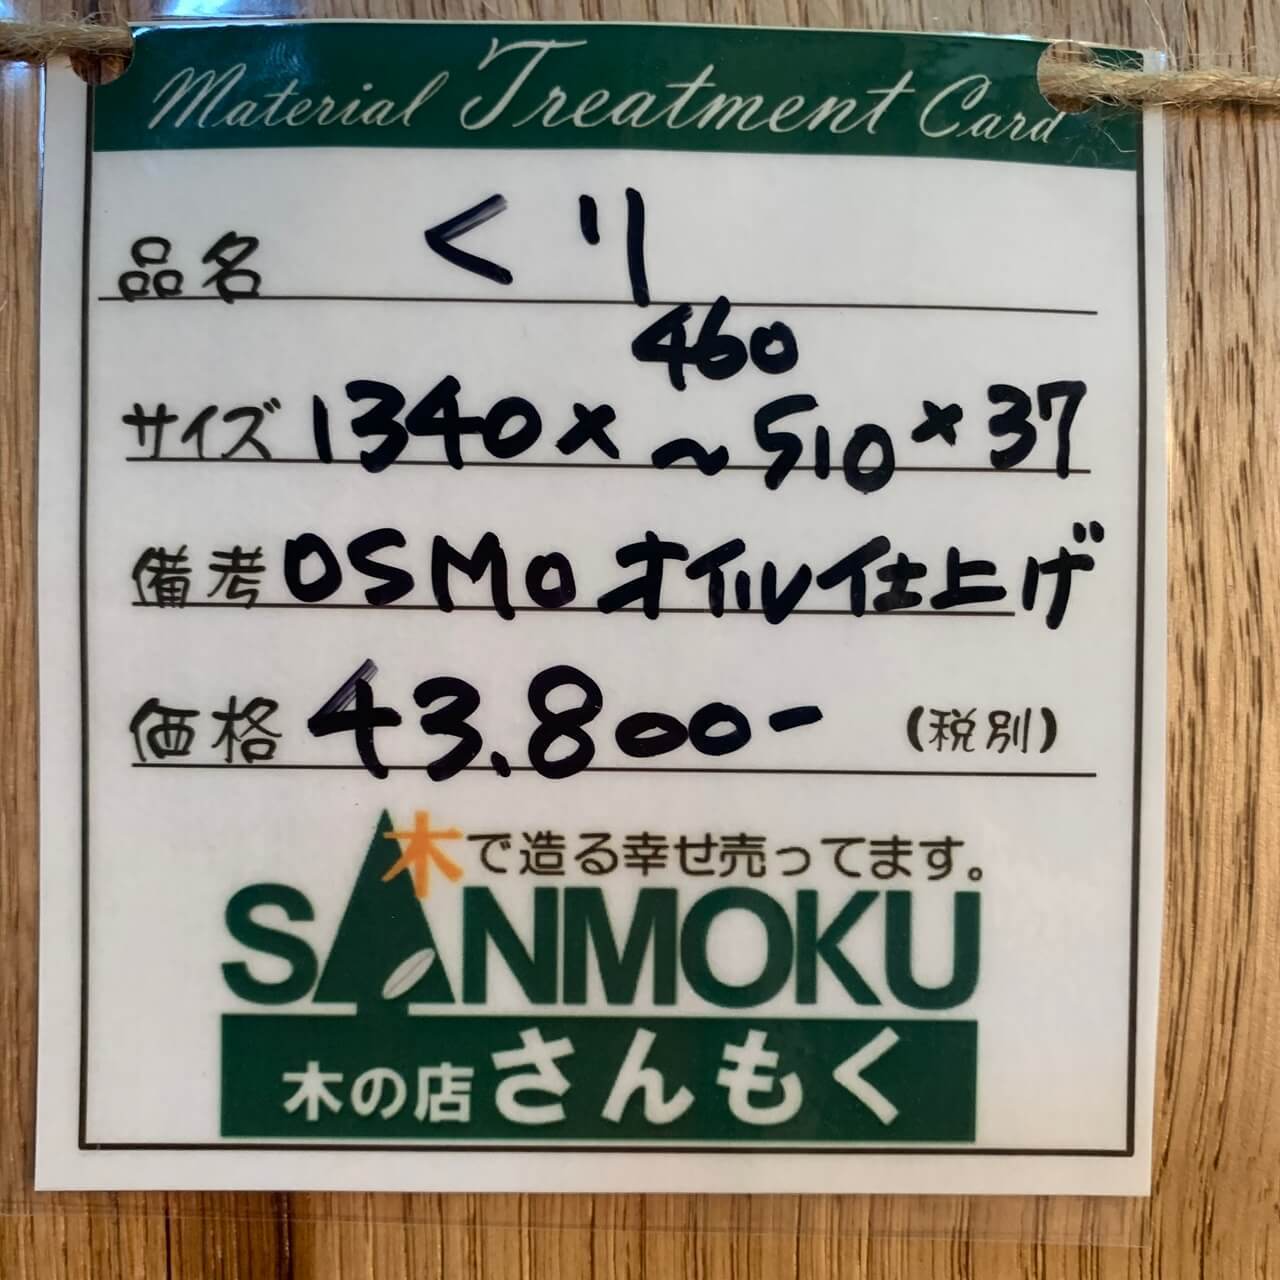 Material Treatment Card
品名 くり
460
サイズ 1340×~510×37
備考 OSMOオイル仕上げ
価格 43.800- (税別)
木で造る幸せ売ってます。
SANMOKU
木の店さんもく